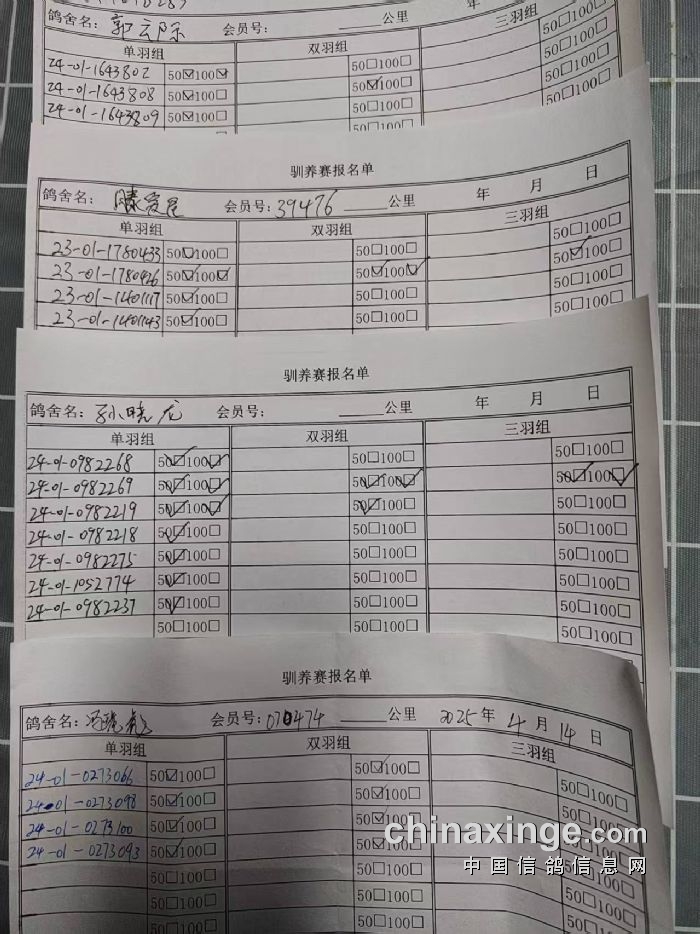 鸽舍名：郭云际 会员号： 公里
单羽组 双羽组 三羽组
24-01-1643802 50☑100☑ 50☐100☐
24-01-1643808 50☑100☐ 50☑100☐ 50☐100☐
24-01-1643809 50☑100☐ 50☐100☐ 50☐100☐
驯养赛报名单
鸽舍名：滕爱民 会员号：39476 公里 年 月 日
单羽组 双羽组 三羽组
23-01-1780433 50☑100☐ 50☐100☐ 50☐100☐
23-01-1780426 50☑100☑ 50☑100☑ 50☑100☐
23-01-1401117 50☑100☐ 50☐100☐ 50☐100☐
23-01-1401143 50☑100☐ 50☐100☐ 50☐100☐
驯养赛报名单
鸽舍名：孙晓龙 会员号： 公里 年 月 日
单羽组 双羽组 三羽组
24-01-0982268 50☑100☑ 50☐100☐ 50☐100☐
24-01-0982269 50☑100☑ 50☑100☑ 50☑100☑
24-01-0982219 50☑100☑ 50☑100☐ 50☐100☐
24-01-0982218 50☑100☐ 50☐100☐ 50☐100☐
24-01-0982275 50☑100☐ 50☐100☐ 50☐100☐
24-01-1052774 50☑100☐ 50☐100☐ 50☐100☐
24-01-0982237 50☑100☐ 50☐100☐ 50☐100☐
50☐100☐ 50☐100☐ 50☐100☐
驯养赛报名单
鸽舍名： 会员号：070474 公里 2025年 4月 14日
单羽组 双羽组 三羽组
24-01-0273066 50☑100☐ 50☑100☐ 50☐100☐
24-01-0273098 50☑100☐ 50☑100☐ 50☐100☐
24-01-0273100 50☑100☐ 50☑100☐ 50☐100☐
24-01-0273093 50☑100☐ 50☑100☐
50☐100☐ 50☐100☐
50☐100☐ 50☐100☐ 50☐100☐
50☐100☐ 50☐100☐ 50☐100☐
chinaxinge.com
中国信鸽信息网